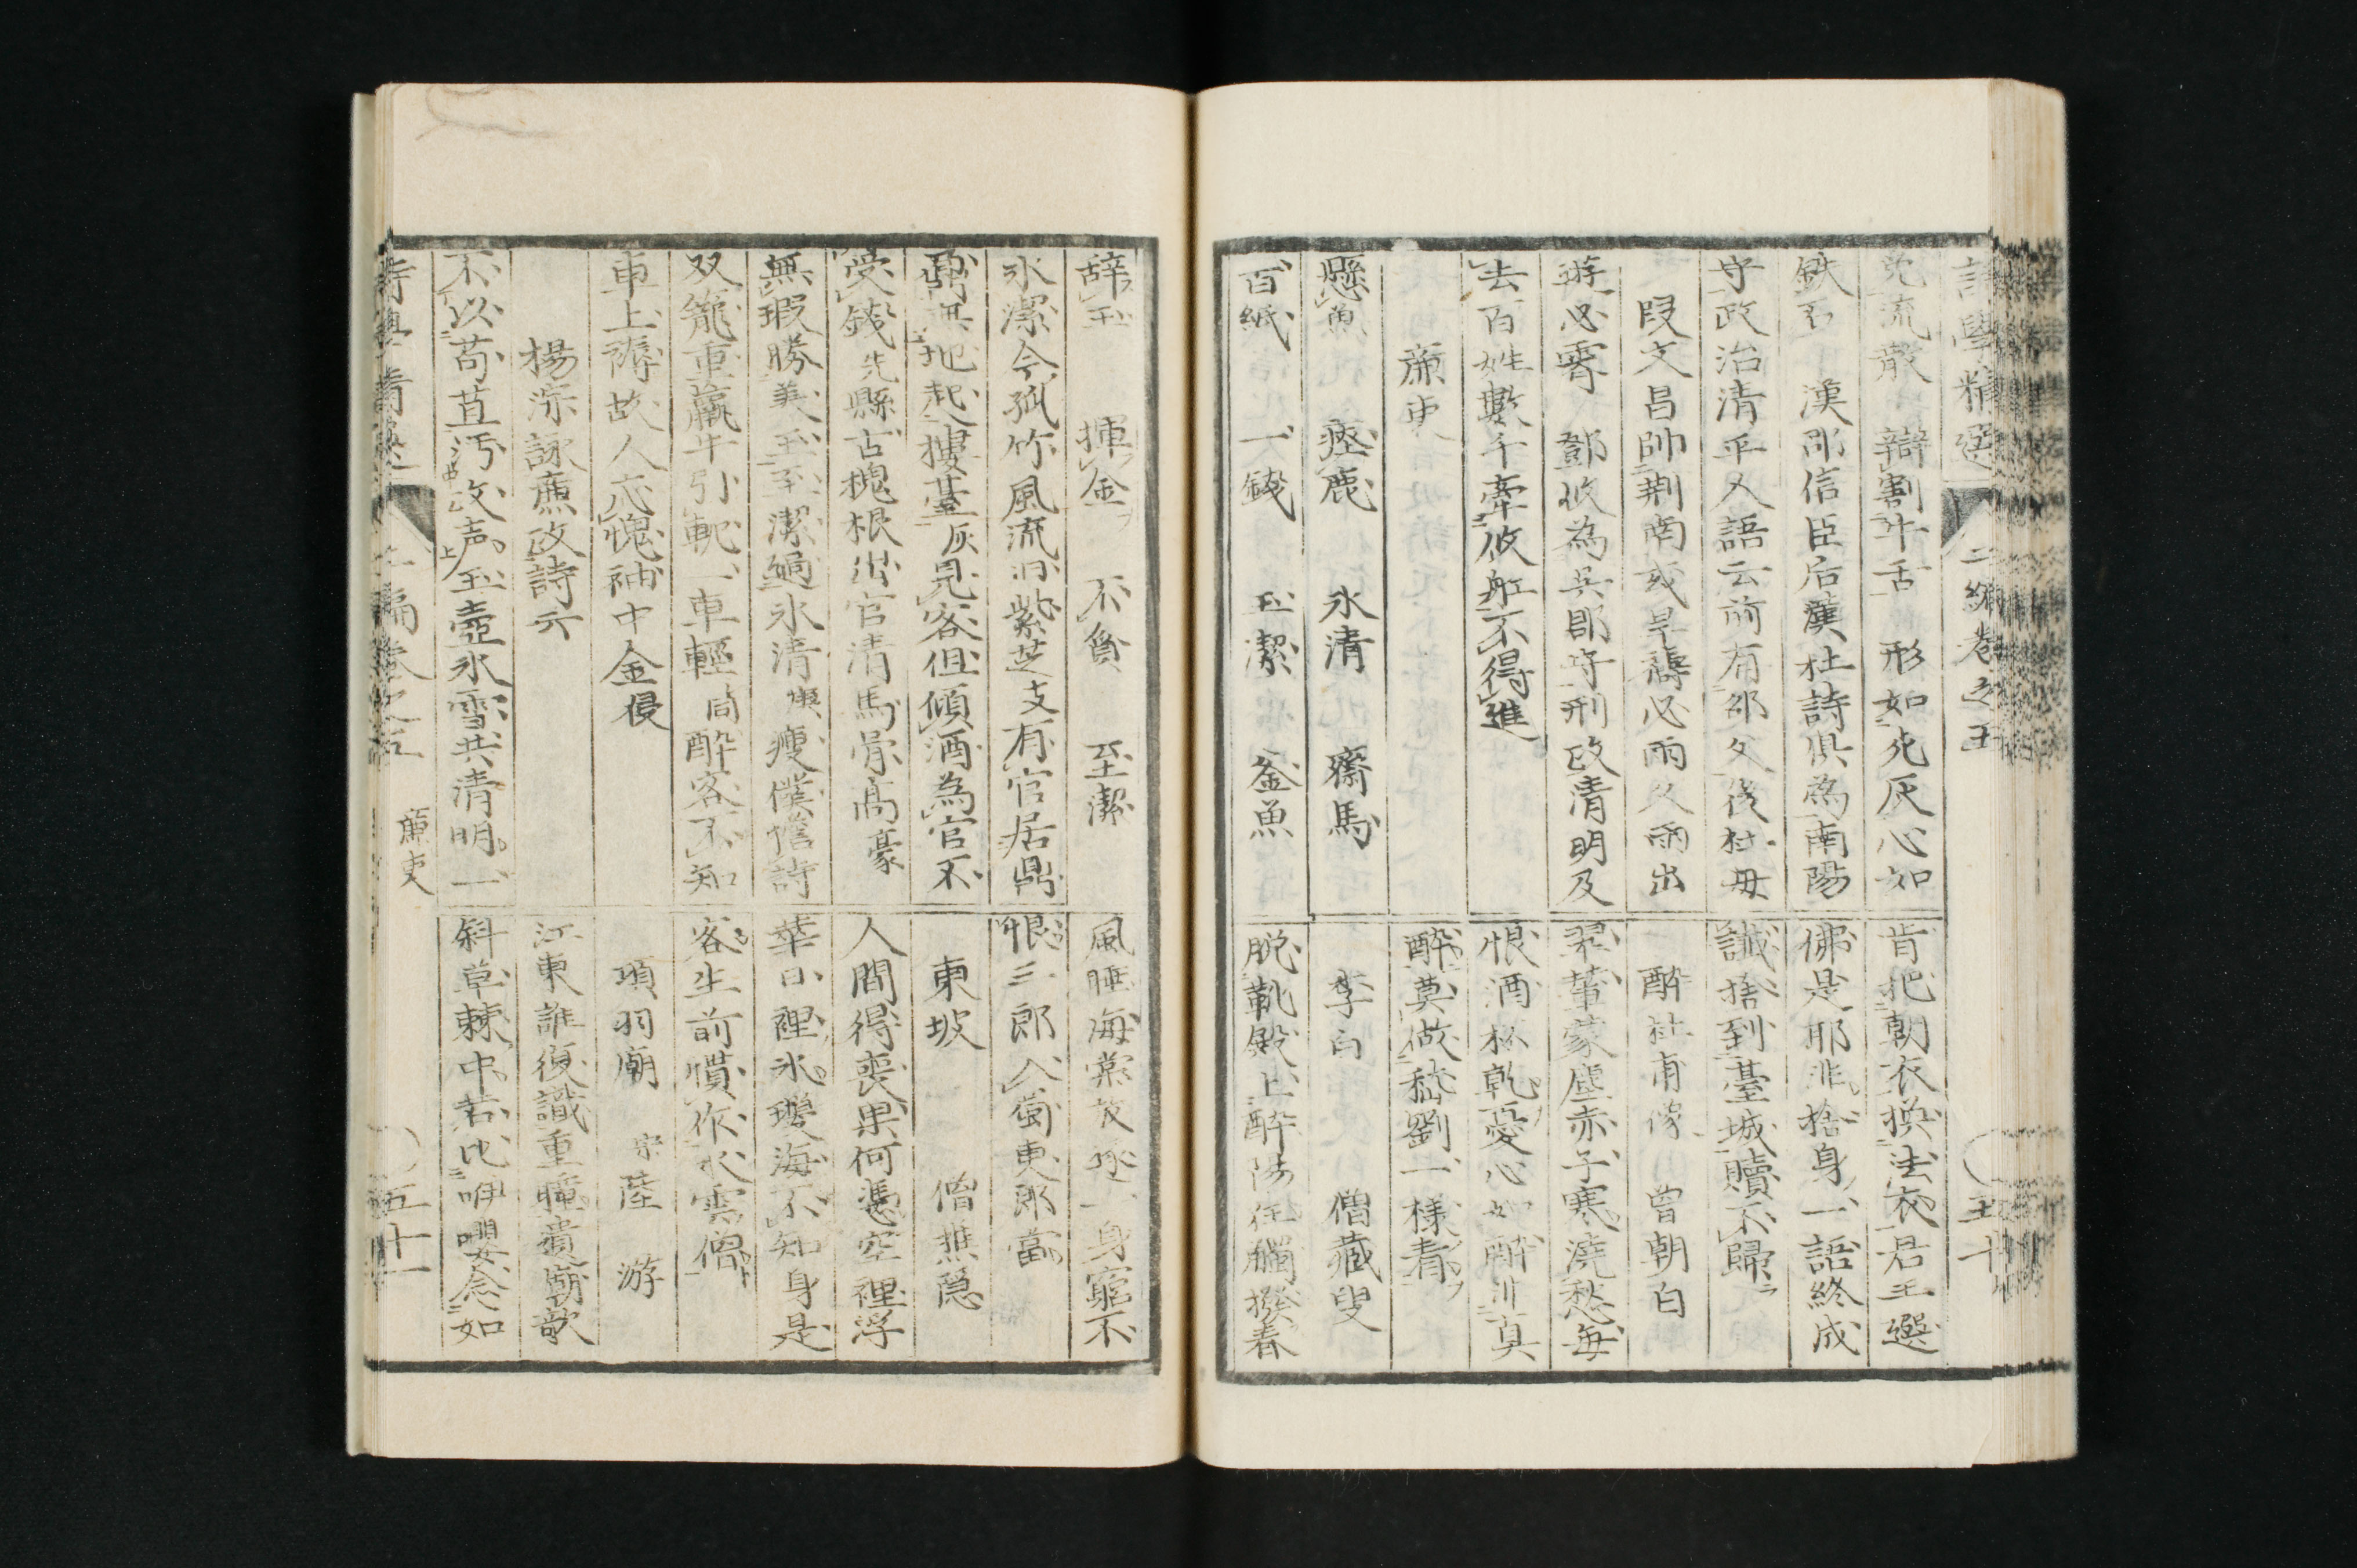 詩學精選 二編卷之五 五十
流 辯割牛舌 形如死灰心如
鉄石 漢邵信臣后漢杜詩俱為南陽
守政治清平人語云前有邵父後杜母
段文昌帥荆南或旱禱必雨久雨出
遊必霽 鄧攸為吳郡守刑政清明及
去百姓數千牽攸舡不得進
廉吏
懸魚 瘞鹿 氷清 齋馬
百紙 一錢 玉潔 釜魚
肯把朝衣換法衣君王選
佛是耶非捨身一語終成
讖捨到臺城贖不歸
酔杜甫像 曾朝白
翠輦蒙塵赤子寒澆愁每
恨酒杯乾憂心如酔非真
酔莫做嵇劉一樣看
李白 僧藏叟
脱靴殿上酔 撥春
辞玉 揮金 不貪 至潔
氷潔今孤竹風流旧紫芝支有官居鼎
鼐無地起摟䑓灰見客但傾酒為官不
受錢先縣古槐根出官清馬骨高豪
無瑕勝美玉至潔過氷清 瘦僕擔詩
双籠重羸牛引軛一車輕 酔客不知
車上 故人応愧袖中金侵
楊 詠廉政詩云
不以苟苴汚政声玉壺氷雪共清明一
風睡海棠 一身窮不
恨三郎入蜀東郎當
東坡 僧樵隠
人間得喪果何憑空裡浮
華日裡氷瓊海不知身是
客生前慣作水雲僧
項羽廟 宋陸 游
江東誰復識重瞳遺廟欹
斜草棘中若比咿嚶念如
二編卷之五 廉吏 五十一